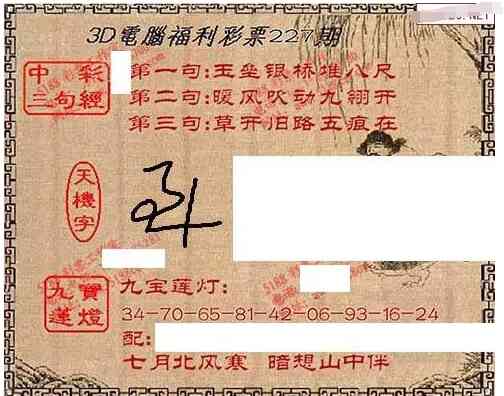 3D電腦福利彩票227期
中彩
三句經
第一句:玉垒银桥堆八尺
第二句:暖风吹动九翎开
第三句:草开旧路五痕在
天機字
九寶
蓮燈
九宝莲灯:
34-70-65-81-42-06-93-16-24
配:
七月北风寒 暗想山中伴